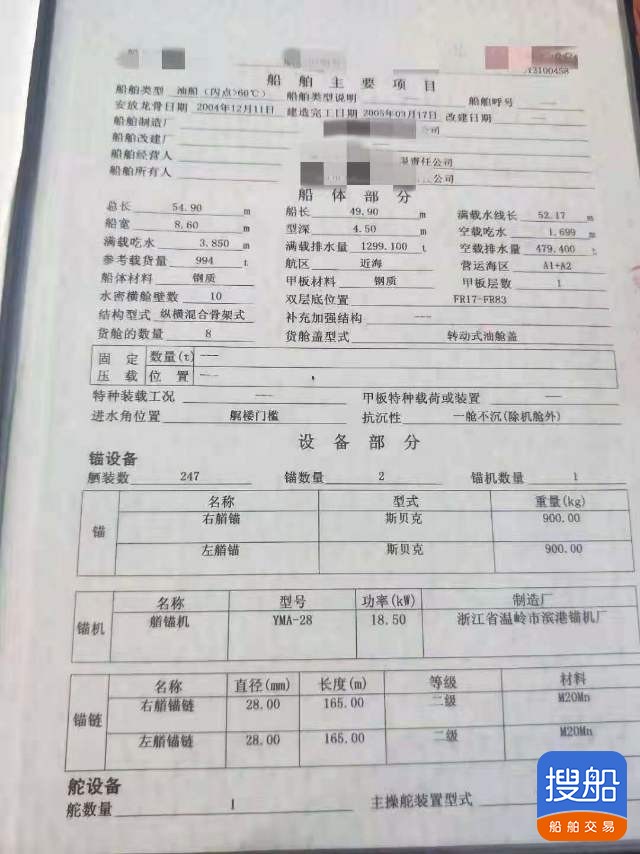 船舶主要项目
船舶类型 油船(闪点>60℃) 船舶类型说明 船舶呼号 ---
安放龙骨日期 2004年12月11日 建造完工日期 2005年03月17日 改建日期 ---
船舶制造厂 公司
船舶改建厂
船舶经营人 责任公司
船舶所有人 公司
船体部分
总长 54.90 m 船长 49.90 m 满载水线长 52.17 m
船宽 8.60 m 型深 4.50 m 空载吃水 1.699 m
满载吃水 3.850 m 满载排水量 1299.100 t 空载排水量 479.400 t
参考载货量 994 t 航区 近海 营运海区 A1+A2
船体材料 钢质 甲板材料 钢质 甲板层数 1
水密横舱壁数 10 双层底位置 FR17-FR83
结构型式 纵横混合骨架式 补充加强结构 ---
货舱的数量 8 货舱盖型式 转动式油舱盖
固定压载 数量(t) ---
位置 ---
特种装载工况 --- 甲板特种载荷或装置 ---
进水角位置 艉楼门槛 抗沉性 一舱不沉(除机舱外)
设备部分
锚设备
舾装数 247 锚数量 2 锚机数量 1
锚 名称 型式 重量(kg)
右艏锚 斯贝克 900.00
左艏锚 斯贝克 900.00
锚机 名称 型号 功率(kW) 制造厂
艏锚机 YMA-28 18.50 浙江省温岭市滨港锚机厂
锚链 名称 直径(mm) 长度(m) 等级 材料
右艏锚链 28.00 165.00 二级 M20Mn
左艏锚链 28.00 165.00 二级 M20Mn
舵设备
舵数量 1 主操舵装置型式
搜船
船舶交易